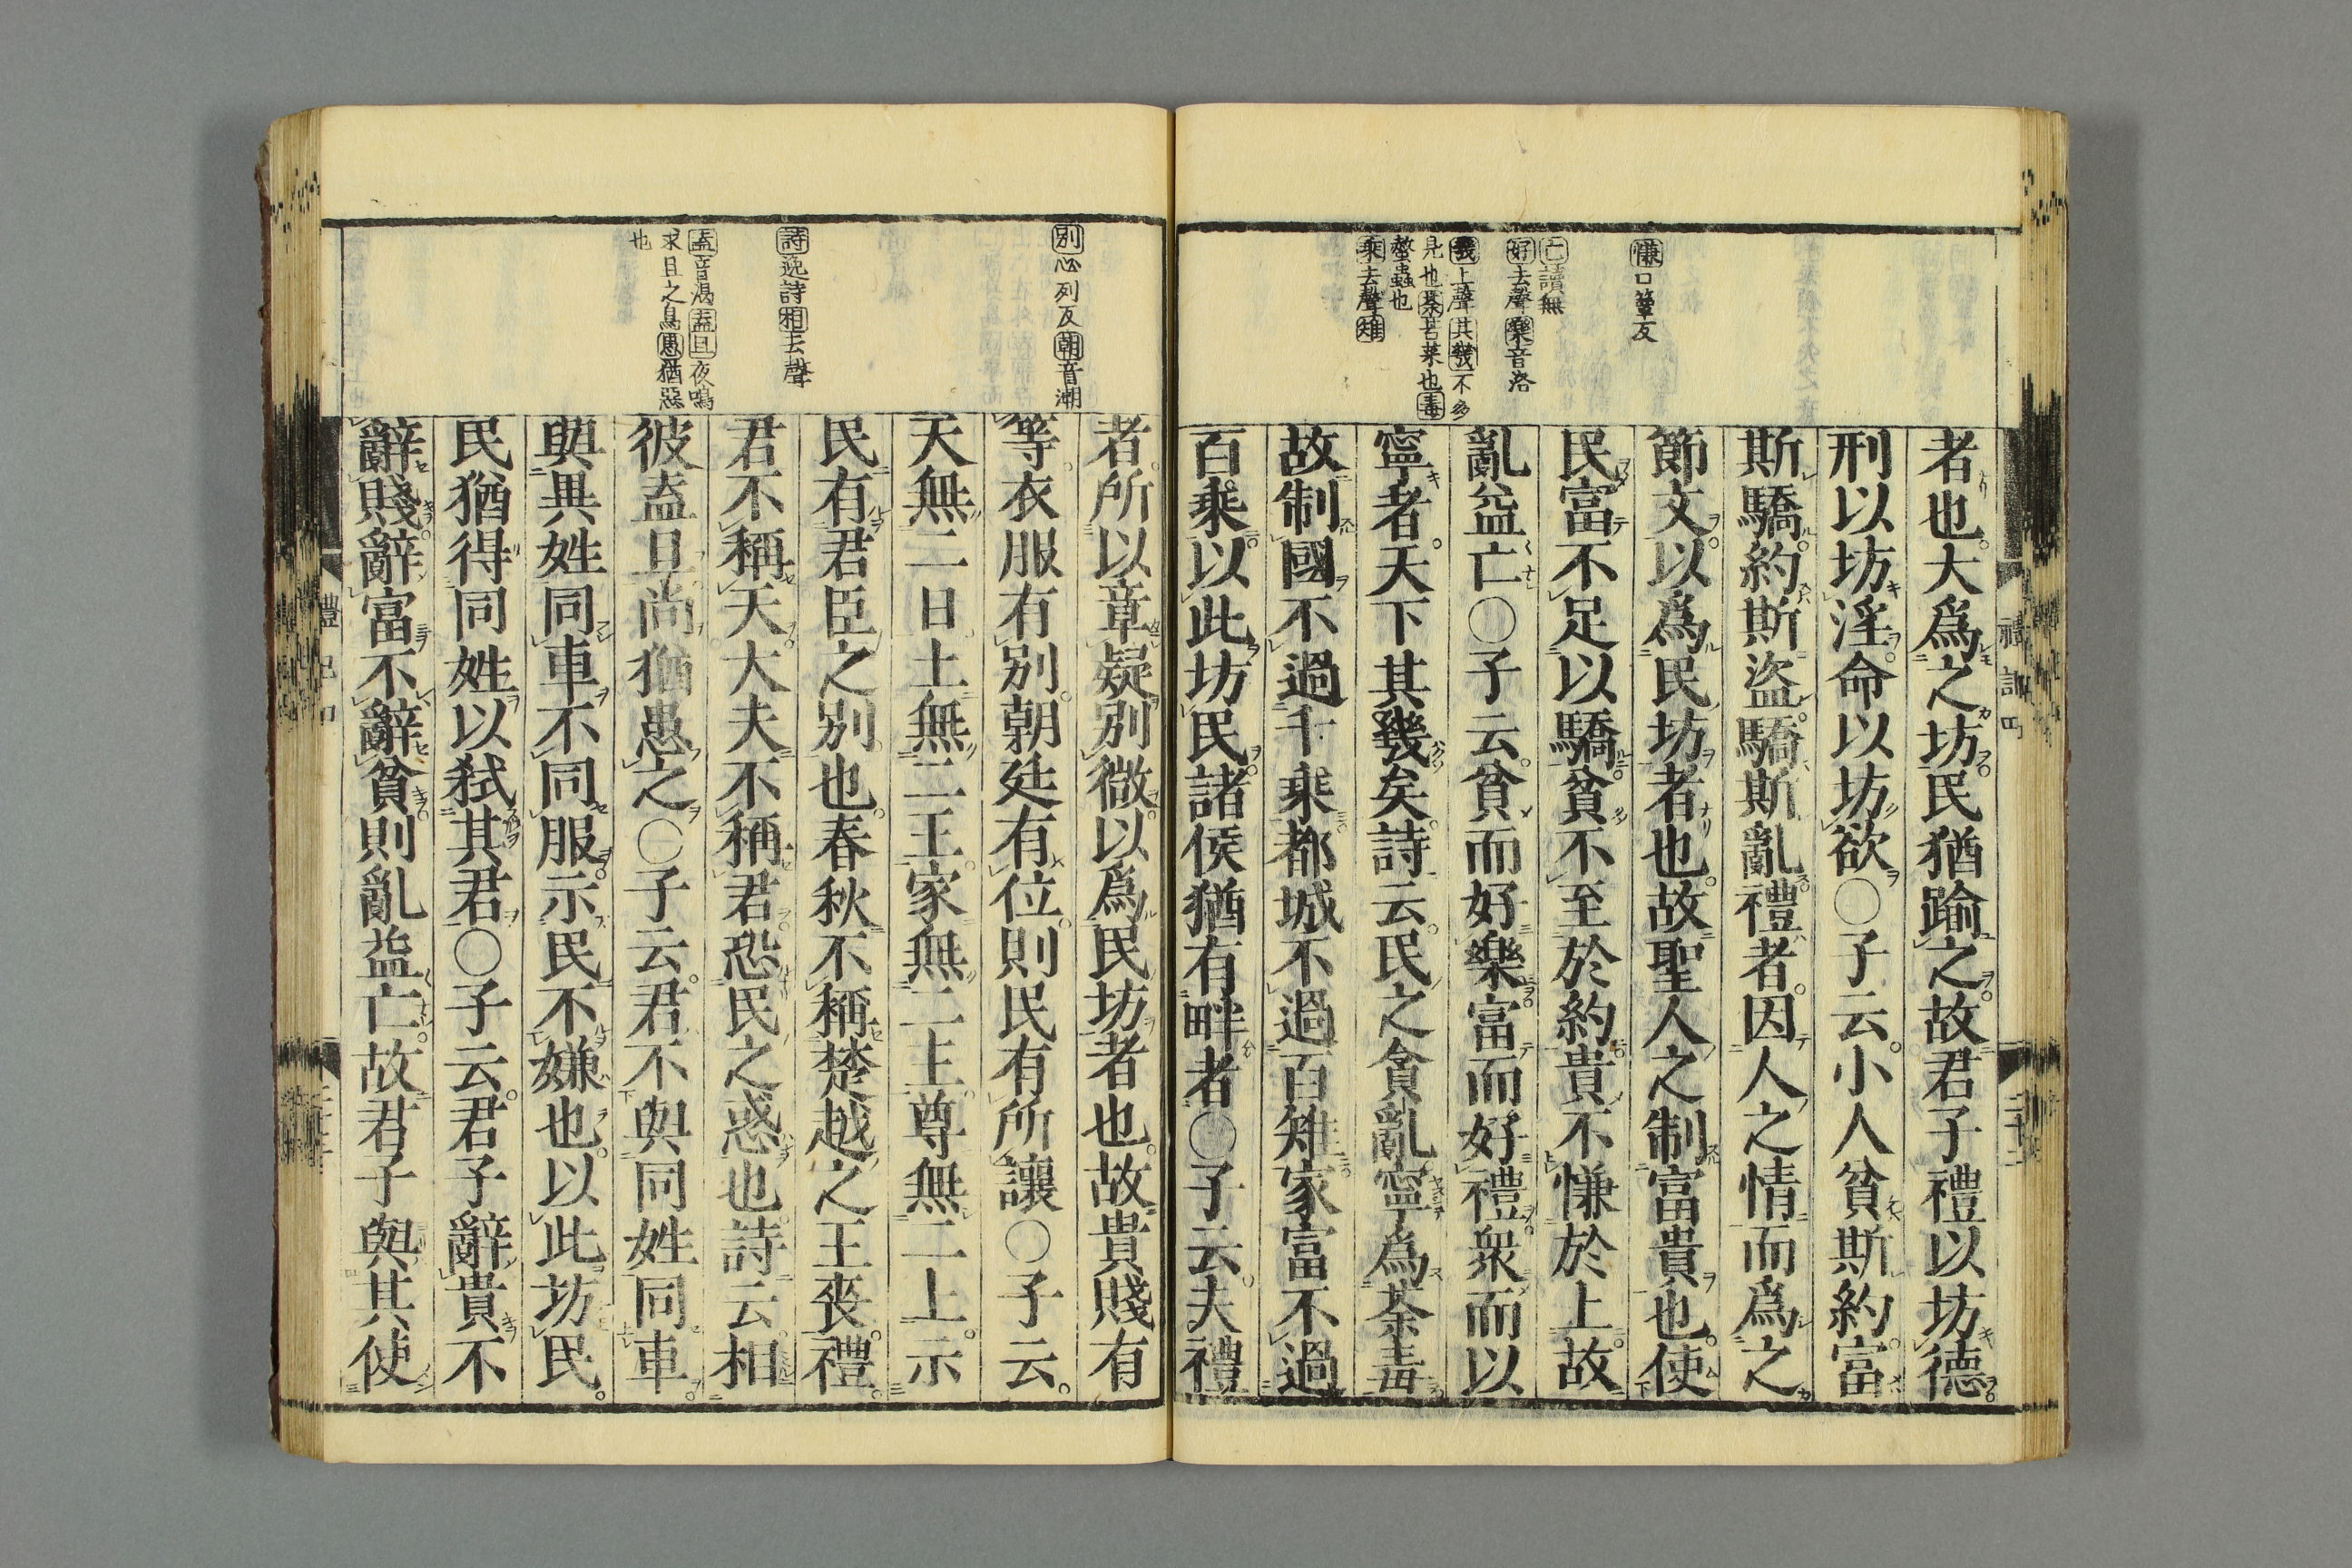 慊口簟反
亡讀無
好去聲樂音洛
幾上聲其幾不多
見也荼苦菜也毒
螫蟲也
乘去聲雉
者也大爲之坊民猶踰之故君子禮以坊德
刑以坊淫命以坊欲○子云小人貧斯約富
斯驕約斯盜驕斯亂禮者因人之情而爲之
節文以爲民坊者也故聖人之制富貴也使
民富不足以驕貧不至於約貴不慊於上故
亂益亡○子云貧而好樂富而好禮衆而以
寧者天下其幾矣詩云民之貪亂寧爲荼毒
故制國不過千乘都城不過百雉家富不過
百乘以此坊民諸侯猶有畔者○子云夫禮
禮記四
二十二
別必列反朝音潮
詩逸詩相去聲
盍音渴盍旦夜鳴
求旦之鳥患猶惡
也
者所以章疑別微以爲民坊者也故貴賤有
等衣服有別朝廷有位則民有所讓○子云
天無二日土無二王家無二主尊無二上示
民有君臣之別也春秋不稱楚越之王喪禮
君不稱天大夫不稱君恐民之惑也詩云相
彼盍旦尚猶患之○子云君不與同姓同車
與異姓同車不同服示民不嫌也以此坊民
民猶得同姓以弑其君○子云君子辭貴不
辭賤辭富不辭貧則亂益亡故君子與其使
禮記四